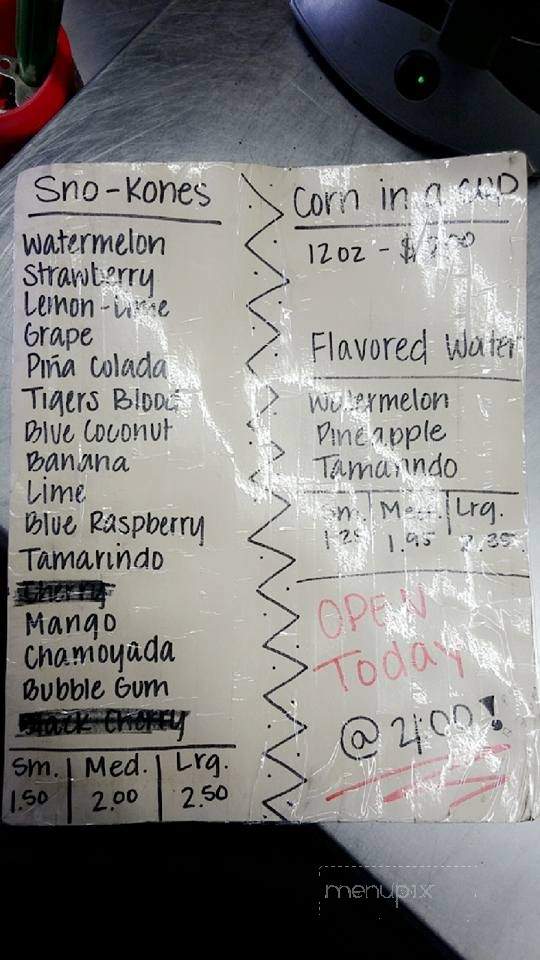 Sno-Kones
Watermelon
Strawberry
Lemon-Lime
Grape
Piña Colada
Tigers Blood
Blue Coconut
Banana
Lime
Blue Raspberry
Tamarindo
Cherry
Mango
Chamoyada
Bubble Gum
Black Cherry
Sm. | Med. | Lrg.
1.50 | 2.00 | 2.50
Corn in a cup
12oz -
Flavored Water
Watermelon
Pineapple
Tamarindo
Sm. | Med. | Lrg.
1.95 2.35
OPEN
Today
@ 2:00!
menupix